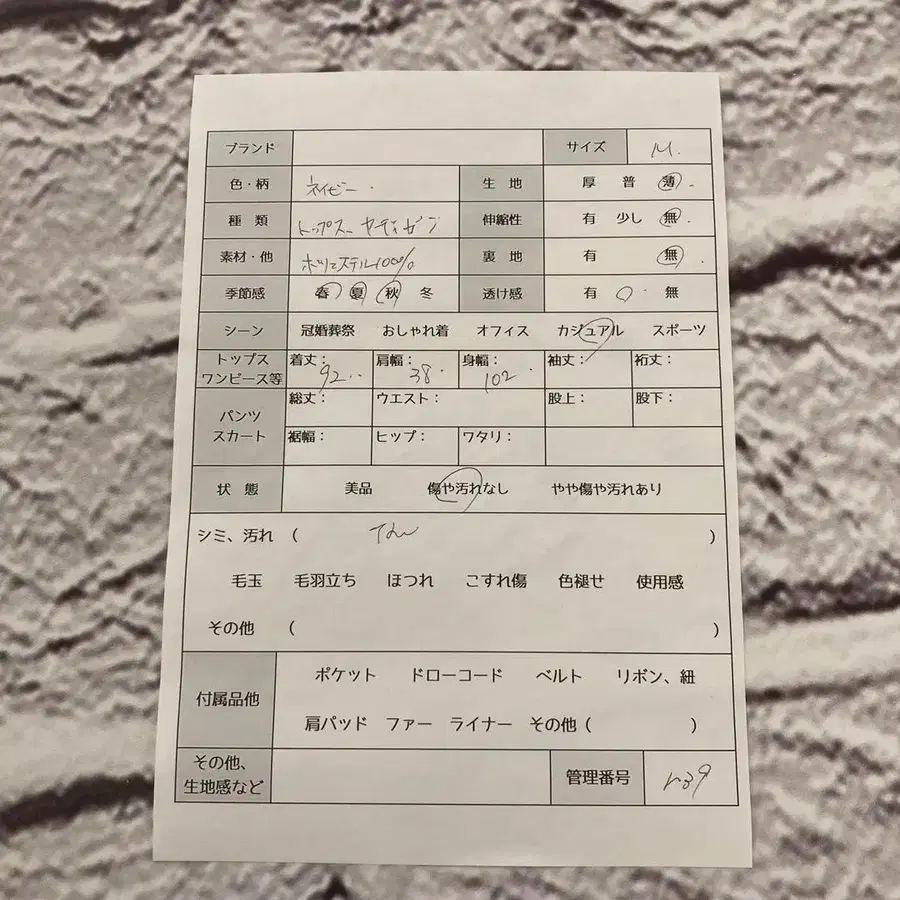 ブランド サイズ M.
色・柄 ネイビー. 生 地 厚 普 薄.
種 類 トップス カーディガン 伸縮性 有 少し 無.
素材・他 ポリエステル100% 裏 地 有 無.
季節感 春 夏 秋 冬 透け感 有 無
シーン 冠婚葬祭 おしゃれ着 オフィス カジュアル スポーツ
トップス ワンピース等 着丈: 92.. 肩幅: 38. 身幅: 102. 袖丈: 裄丈:
パンツ スカート 総丈: ウエスト: 股上: 股下:
裾幅: ヒップ: ワタリ:
状 態 美品 傷や汚れなし やや傷や汚れあり
シミ、汚れ ( )
毛玉 毛羽立ち ほつれ こすれ傷 色褪せ 使用感
その他 ( )
付属品他 ポケット ドローコード ベルト リボン、紐
肩パッド ファー ライナー その他 ( )
その他、
生地感など 管理番号